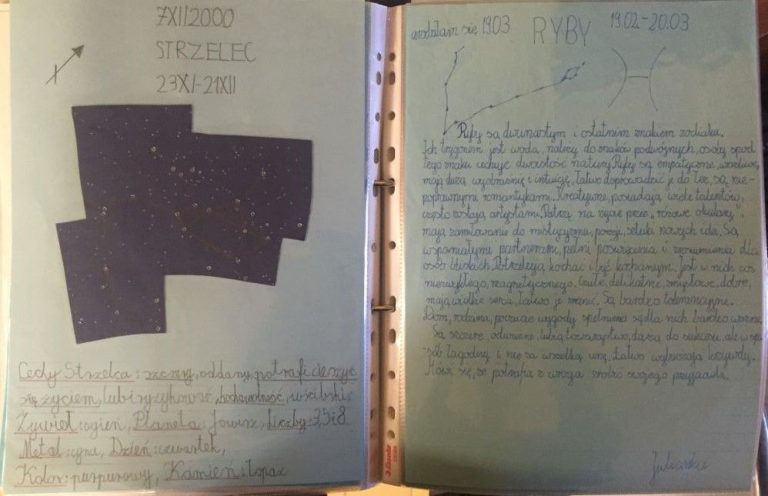 7XII2000
STRZELEC
23XI-21XII
Cechy Strzelca: szczery, oddany, potrafi cieszyć
się życiem, lubi ryzykować,
Żywioł: ogień, Planeta: Jowisz, Liczby: 3,5 i 8
Metal: cyna, Dzień: czwartek,
Kolor: purpurowy, Kamień: topaz
urodziłam się 19.03 RYBY 19.02-20.03
Ryby są dwunastym i ostatnim znakiem zodiaku.
Ich żywiołem jest woda, należą do znaków podwójnych, osoby spod
tego znaku cechuje dwoistość natury. Ryby są empatyczne, wrażliwe,
mają dużą wyobraźnię i intuicję, łatwo doprowadzić je do łez, są nie-
poprawnymi romantykami. Kreatywne, posiadają wiele talentów,
często zostają artystami. Patrzą na życie przez "różowe okulary",
mają zamiłowanie do mistycyzmu, poezji, sztuki nowych idei. Są
wspaniałymi partnerami, pełni poświęcenia i zrozumienia dla
osób bliskich. Potrzebują kochać i być kochanym. Jest w nich coś
niezwykłego, magnetycznego. Czułe, delikatne, zmysłowe, dobre,
mają wielkie serca, łatwo je zranić. Są bardzo tolerancyjne.
Dom, rodzina, poczucie wygody spełnienia są dla nich bardzo ważne.
Są szczere, lubią towarzystwo, dążą do sukcesu, ale w spo-
sób łagodny i nie za wszelką cenę. Łatwo wybaczają krzywdy.
Mówi się, że potrafią z wroga zrobić swojego przyjaciela.